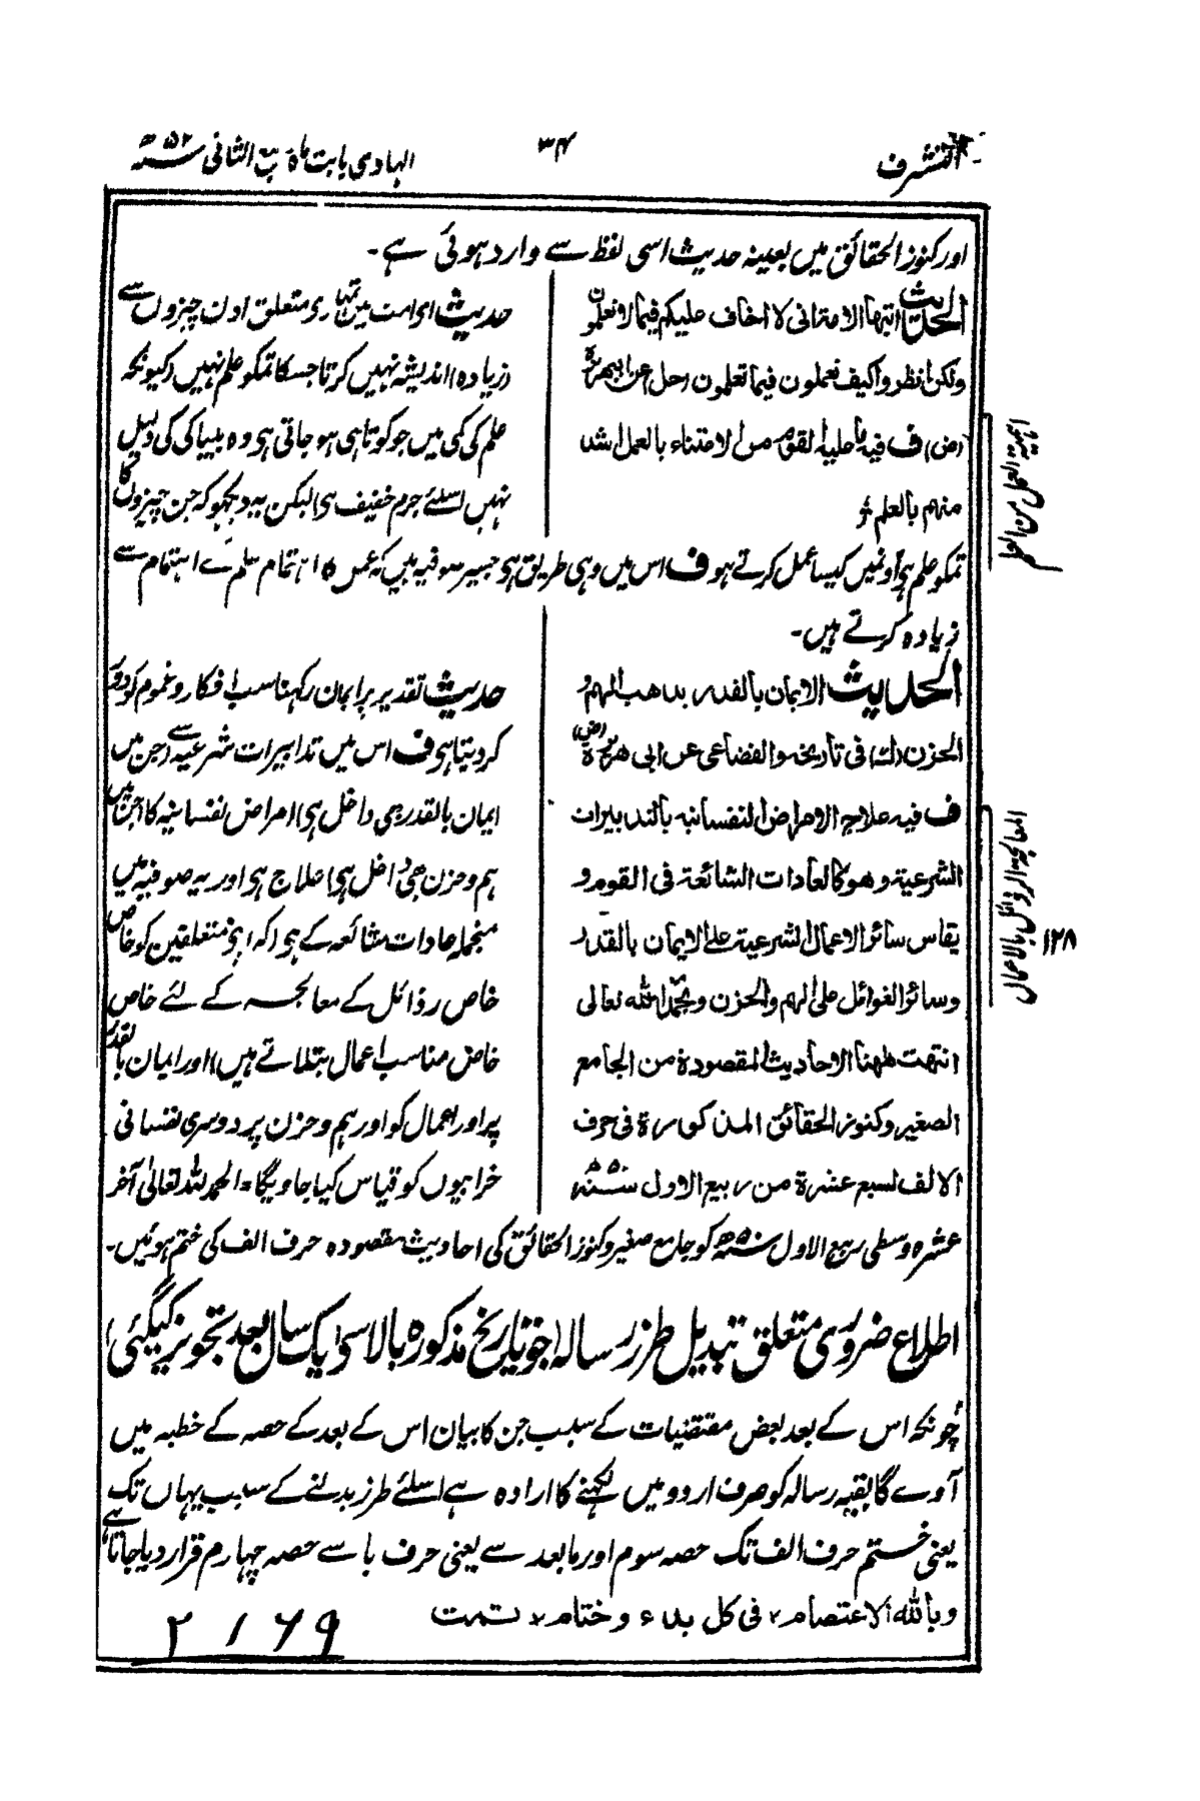 التشرف
۳۴
الہادی بابت ماہ ربیع الثانی ۵۲ھ
اور کنوز الحقائق میں بعینہ حدیث اسی لفظ سے وارد ہوئی ہے۔
الحدیث ایتہا الامۃ انی لا اخاف علیکم فیما لا تعلمون
ولکن انظروا کیف تعملون فیما تعلمون (حل) عن ابی ہریرۃ
(رض) ف فیہ ما علیہ القوم من الاعتناء بالعمل اشد
منہم بالعلم
حدیث اے امت میں تمہاری متعلق اون چیزوں سے
(زیادہ) اندیشہ نہیں کرتا جسکا تمکو علم نہیں (کیونکہ
علم کی کمی میں جو کوتاہی ہو جاتی ہی وہ بیباکی کی دلیل
نہیں اسلئے جرم خفیف ہی) لیکن یہ دیکھو کہ جن چیزوں کا
تمکو علم ہی اونمیں کیسا عمل کرتے ہو ف اس میں وہی طریق ہی جسپر صوفیہ ہیں کہ عمل کا اہتمام علم کے اہتمام سے
زیادہ کرتے ہیں۔
الحدیث الایمان بالقدر یذہب الہم و
الحزن (ک) فی تاریخہ والقضاعی عن ابی ہریرۃ (رض)
ف فیہ علاج الامراض النفسانیہ بالتدبیرات
الشرعیۃ وھو کالعادات الشائعۃ فی القوم و
یقاس سائر الاعمال الشرعیۃ علی الایمان بالقدر
وسائر الغوائل علی الہم والحزن وبحمد اللہ تعالی
انتہت ھہنا الاحادیث المقصودۃ من الجامع
الصغیر وکنوز الحقائق المذکورۃ فی حرف
الالف لسبع عشرۃ من ربیع الاول ۵۰ھ
حدیث تقدیر پر ایمان رکہنا سب افکار و غموم کو دور
کر دیتا ہی ف اس میں تدابیرات شرعیہ سے (جن میں
ایمان بالقدر بھی داخل ہی) امراض نفسانیہ کا (جن میں
ہم و حزن بھی داخل ہی) علاج ہی اور یہ صوفیہ میں
منجملہ عادات شائعہ کے ہی (کہ اپنے متعلقین کو خاص
خاص رذائل کے معالجہ کے لئے خاص
خاص مناسب اعمال بتلاتے ہیں) اور ایمان بالقدر
پر اور اعمال کو اور ہم و حزن پر دوسری نفسانی
خرابیوں کو قیاس کیا جاویگا۔ الحمد للہ تعالیٰ آخر
عشرہ وسطی ربیع الاول ۵۰ھ کو جامع صغیر و کنوز الحقائق کی احادیث مقصودہ حرف الف کی ختم ہوئیں۔
اطلاع ضروری متعلق تبدیل طرز رسالہ (جو تاریخ مذکورہ بالا سی ایک سال بعد تجویز کیگئی)
چونکہ اس کے بعد بعض مقتضیات کے سبب جن کا بیان اس کے بعد کے حصہ کے خطبہ میں
آوے گا بقیہ رسالہ کو صرف اردو میں لکہنے کا ارادہ ہے اسلئے طرز بدلنے کے سبب یہاں تک
یعنی ختم حرف الف تک حصہ سوم اور مابعد سے یعنی حرف با سے حصہ چہارم قرار دیا جاتا ہے
وباللہ الاعتصام فی کل بدء وختام تمت
۲۱۶۹
۱۲۸